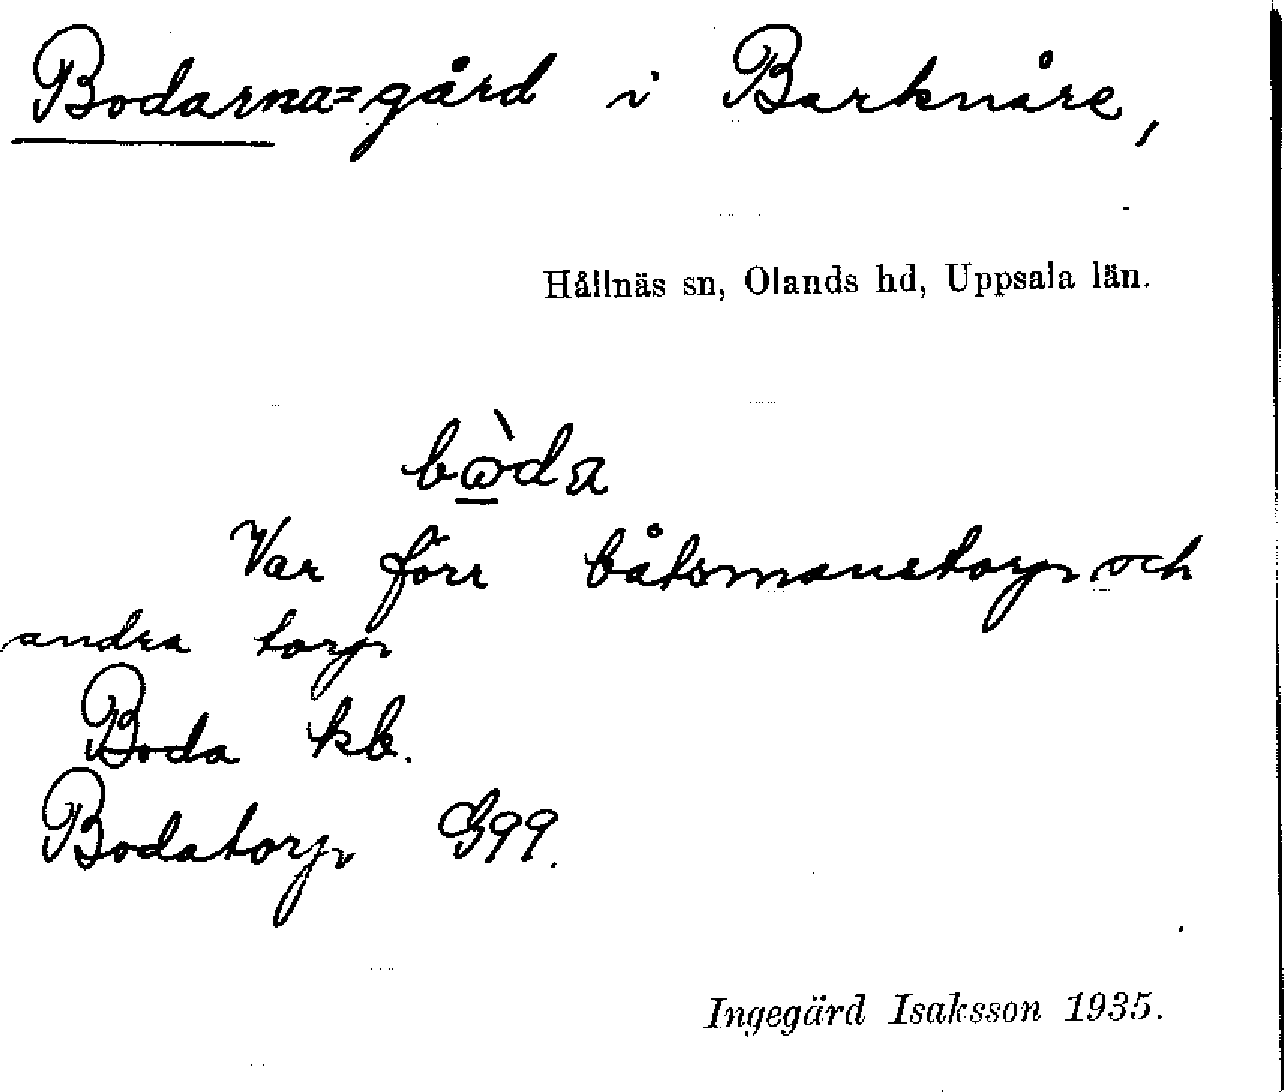 Bodarna=gård i Barknåre,
Hållnäs sn, Olands hd, Uppsala län.
Var förr båtsmanstorp och
andra torp
Boda kb.
Bodatorp G99.
Ingegärd Isaksson 1935.